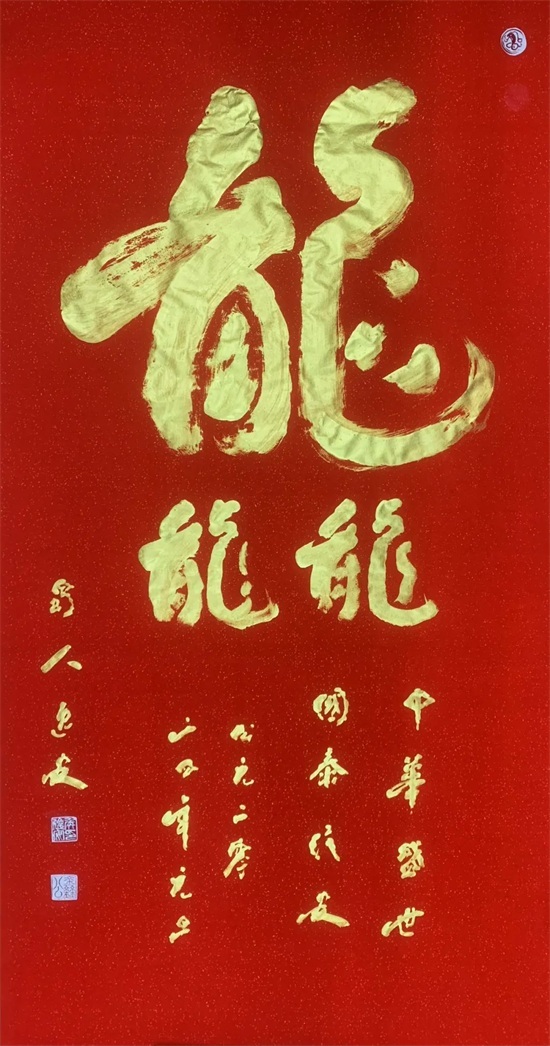 龍
龍龍
中華盛世
國泰安
公元二零
二四年元旦
人